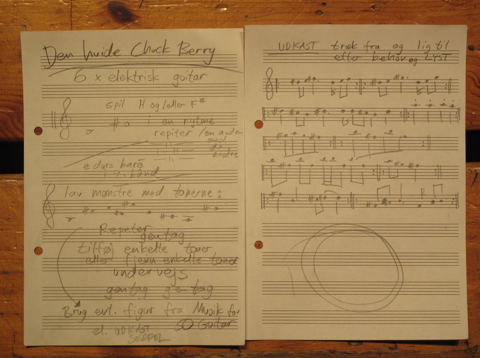 Den hvide Chuck Berry
6 x elektrisk guitar
spil H og/eller F#
i en rytme
repiter / en anden
lav mønstre med tonerne:
Repeter
gentag
tilføj enkelte toner
eller fjern enkelte toner
undervejs
gentag gentag
Brug evt. figur fra Musik for
el. UDKAST 50 Guitar
SEDDEL
UDKAST træk fra og lig til
efter behov og LYST